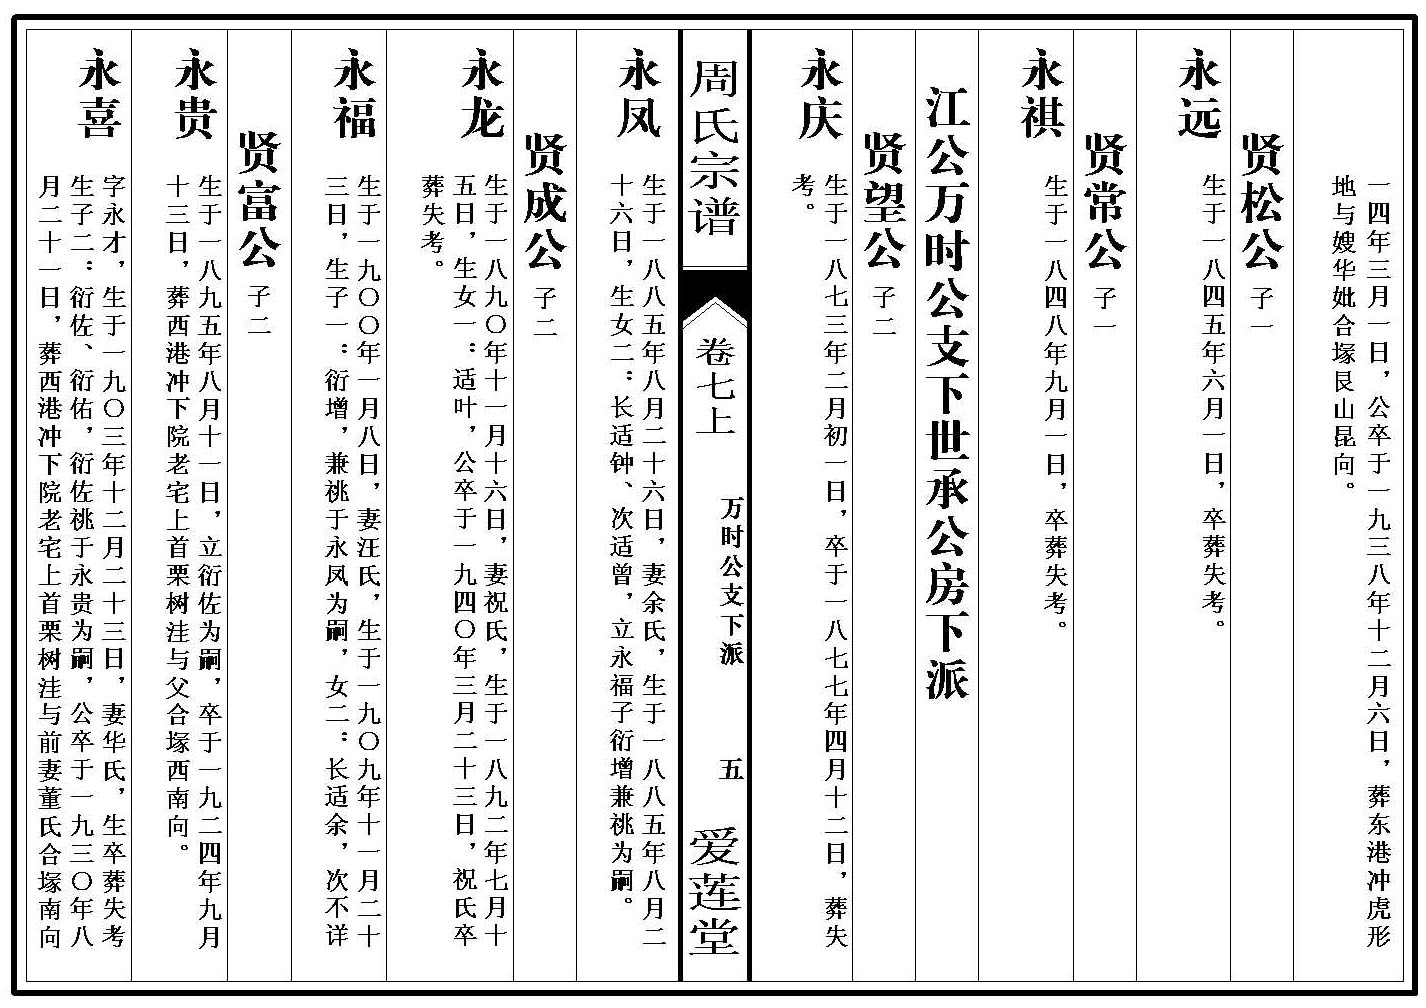 一四年三月一日，公卒于一九三八年十二月六日，葬东港冲虎形
地与嫂华妣合塚艮山昆向。
贤松公 子一
永远
生于一八四五年六月一日，卒葬失考。
贤常公 子一
永祺
生于一八四八年九月一日，卒葬失考。
江公万时公支下世承公房下派
贤望公 子二
永庆
生于一八七三年二月初一日，卒于一八七七年四月十二日，葬失
考。
周氏宗谱
卷七上
万时公支下派
五
爱莲堂
永凤
生于一八八五年八月二十六日，妻余氏，生于一八八五年八月二
十六日，生女二：长适钟、次适曾，立永福子衍增兼祧为嗣。
贤成公 子二
永龙
生于一八九〇年十一月十六日，妻祝氏，生于一八九二年七月十
五日，生女一：适叶，公卒于一九四〇年三月二十三日，祝氏卒
葬失考。
永福
生于一九〇〇年一月八日，妻汪氏，生于一九〇九年十一月二十
三日，生子一：衍增，兼祧于永凤为嗣，女二：长适余，次不详
贤富公 子二
永贵
生于一八九五年八月十一日，立衍佐为嗣，卒于一九二四年九月
十三日，葬西港冲下院老宅上首栗树洼与父合塚西南向。
永喜
字永才，生于一九〇三年十二月二十三日，妻华氏，生卒葬失考
生子二：衍佐、衍佑，衍佐祧于永贵为嗣，公卒于一九三〇年八
月二十一日，葬西港冲下院老宅上首栗树洼与前妻董氏合塚南向